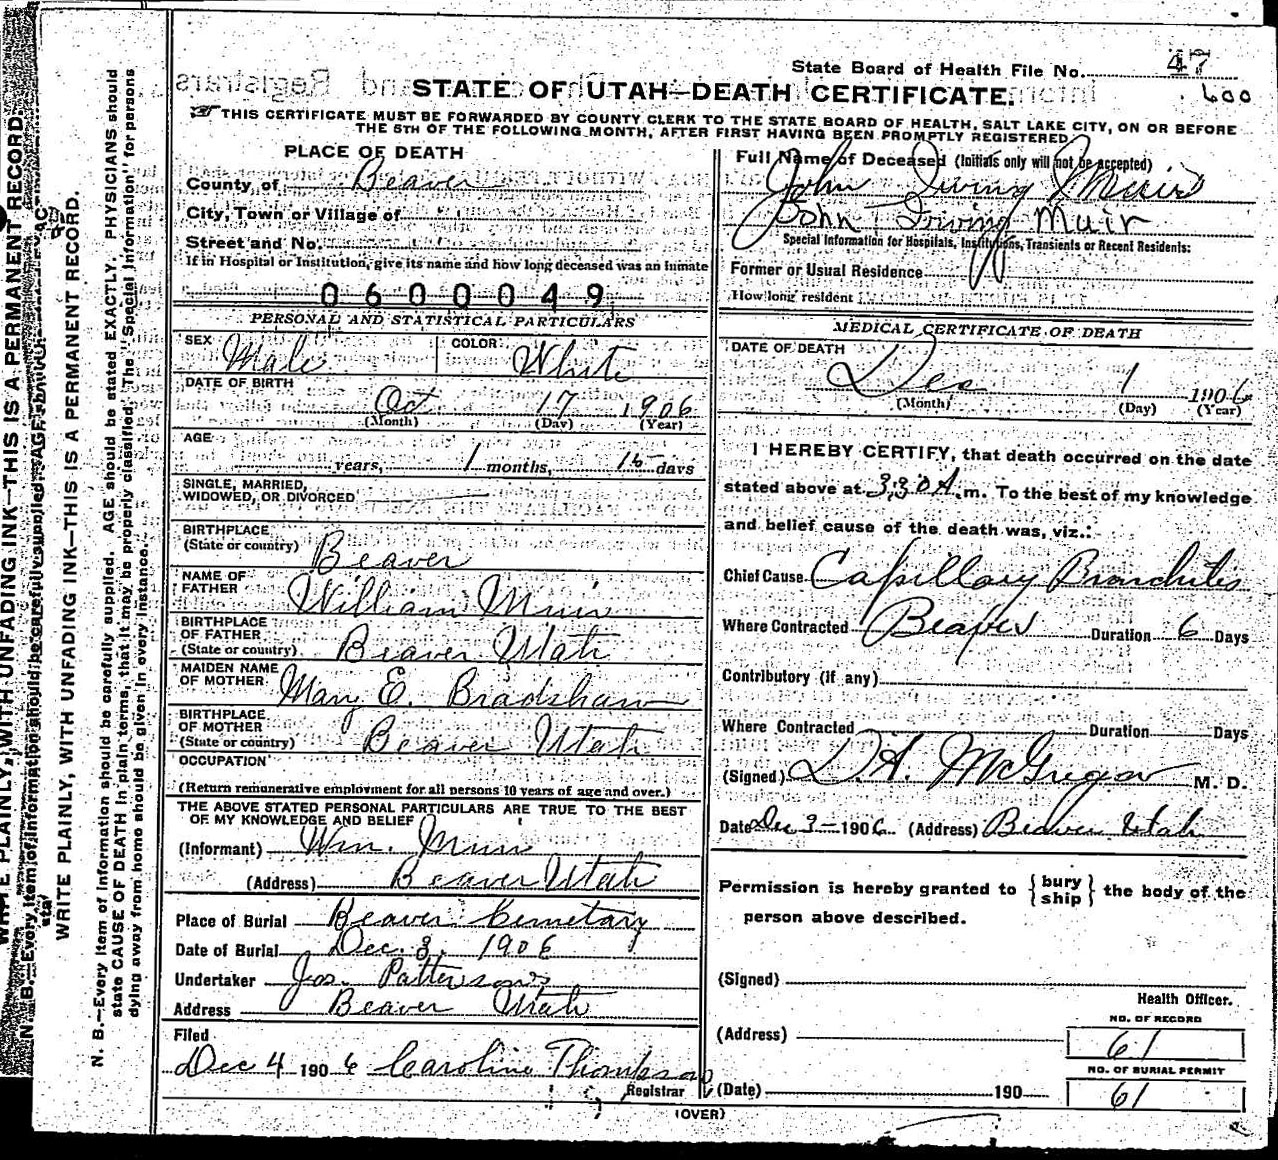 State Board of Health File No. 47
600
STATE OF UTAH—DEATH CERTIFICATE.
THIS CERTIFICATE MUST BE FORWARDED BY COUNTY CLERK TO THE STATE BOARD OF HEALTH, SALT LAKE CITY, ON OR BEFORE
THE 5TH OF THE FOLLOWING MONTH, AFTER FIRST HAVING BEEN PROMPTLY REGISTERED.
PLACE OF DEATH
County of Beaver
City, Town or Village of
Street and No.
If in Hospital or Institution, give its name and how long deceased was an inmate
0600049
PERSONAL AND STATISTICAL PARTICULARS
SEX Male COLOR White
DATE OF BIRTH
Oct 17 1906
(Month) (Day) (Year)
AGE
years, 1 months, 15 days
SINGLE, MARRIED,
WIDOWED, OR DIVORCED
BIRTHPLACE
(State or country) Beaver
NAME OF
FATHER William Muir
BIRTHPLACE
OF FATHER
(State or country) Beaver Utah
MAIDEN NAME
OF MOTHER Mary E. Bradshaw
BIRTHPLACE
OF MOTHER
(State or country) Beaver Utah
OCCUPATION
(Return remunerative employment for all persons 10 years of age and over.)
THE ABOVE STATED PERSONAL PARTICULARS ARE TRUE TO THE BEST
OF MY KNOWLEDGE AND BELIEF
(Informant) Wm. Muir
(Address) Beaver Utah
Place of Burial Beaver Cemetary
Date of Burial Dec. 3. 1906
Undertaker Jos. Patterson
Address Beaver Utah
Filed
Dec 4 1906 Caroline Thompson
Registrar
Full Name of Deceased (Initials only will not be accepted)
John Irving Muir
John Irving Muir
Special Information for Hospitals, Institutions, Transients or Recent Residents:
Former or Usual Residence
How long resident
MEDICAL CERTIFICATE OF DEATH
DATE OF DEATH
Dec 1 1906
(Month) (Day) (Year)
I HEREBY CERTIFY, that death occurred on the date
stated above at 3,30 A.m. To the best of my knowledge
and belief cause of the death was, viz.:
Chief Cause Capillary Bronchitis
Where Contracted Beaver Duration 6 Days
Contributory (if any)
Where Contracted Duration Days
(Signed) D.A. McGregor M. D.
Date Dec 3 - 1906 (Address) Beaver Utah
Permission is hereby granted to { bury ship } the body of the
person above described.
(Signed)
Health Officer.
(Address)
NO. OF RECORD
61
NO. OF BURIAL PERMIT
61
(Date) 190
(OVER)
WRITE PLAINLY, WITH UNFADING INK—THIS IS A PERMANENT RECORD.
N. B.—Every item of information should be carefully supplied. AGE should
WRITE PLAINLY, WITH UNFADING INK—THIS IS A PERMANENT RECORD.
N. B.—Every item of information should be carefully supplied. AGE should be stated EXACTLY. PHYSICIANS should
state CAUSE OF DEATH in plain terms, that it may be properly classified. The "Special Information" for persons
dying away from home should be given in every instance.